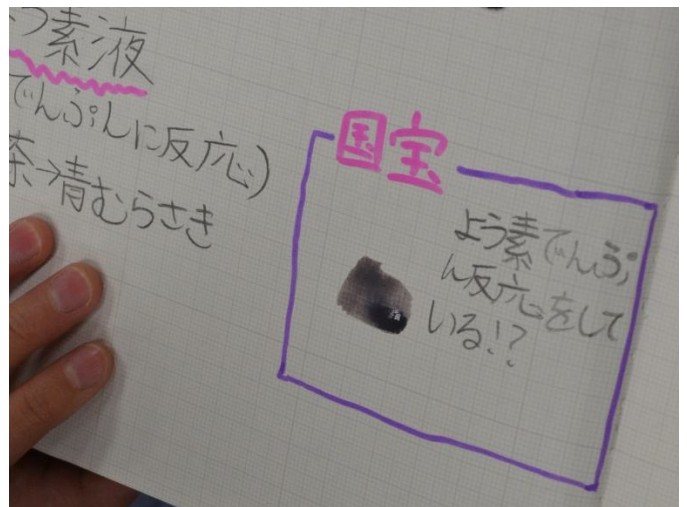 う素液
でんぷんに反応)
茶→青むらさき
国宝
よう素でんぷ
ん反応をして
いる!?